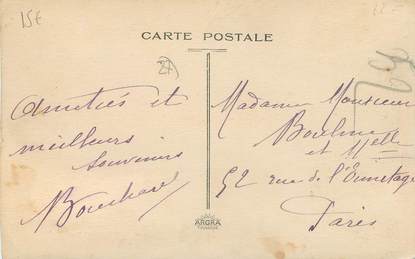 15€
CARTE POSTALE
27
Amitiés et
meilleurs
souvenirs
Madame Monsieur
et Melle
52 rue de l'Ermitage
Paris
ARGRA